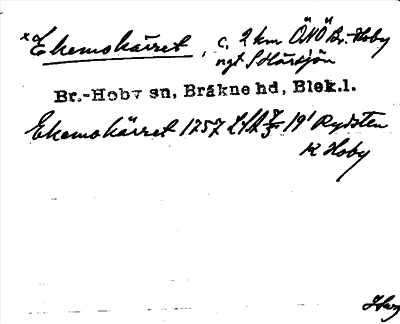 x Ekemokärret, c. 2 km ÖNÖ Br.-Hoby
ngt S Härsjön
Br.-Hoby sn, Bräkne hd, Blek.l.
Ekemokärret 1757 LSA 19' Rydsten
K Hoby